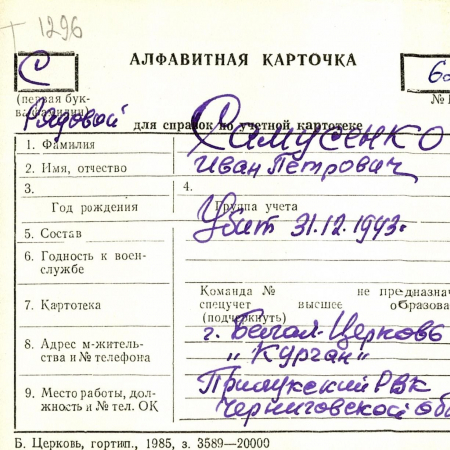 1296
АЛФАВИТНАЯ КАРТОЧКА
С
(первая бук-
Рядовой
для справок по учетной картотеке
1. Фамилия Самусенко
2. Имя, отчество Иван Петрович
3. 4.
Год рождения Группа учета
5. Состав Убит 31.12.1943г
6. Годность к воен-
службе
Команда № не предназнач
7. Картотека спецучет высшее образова
(подчеркнуть)
8. Адрес м-житель-
ства и № телефона
г. Белая-Церковь
„Курган“
9. Место работы, дол-
жность и № тел. ОК
Прилукский РВК
Черниговской об
Б. Церковь, гортип., 1985, з. 3589—20000